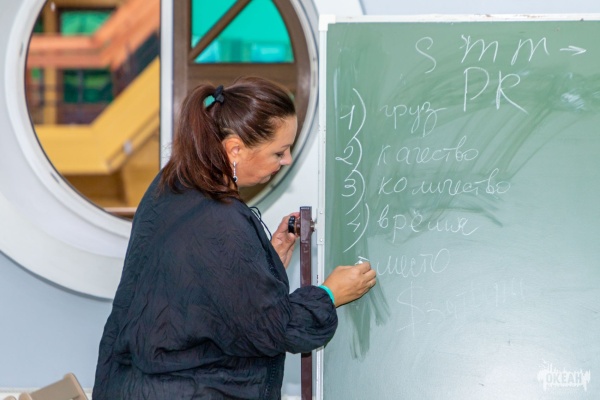 S m m →
PR
1) груз
2) качество
3) количество
4) время
место
ОКЕАН